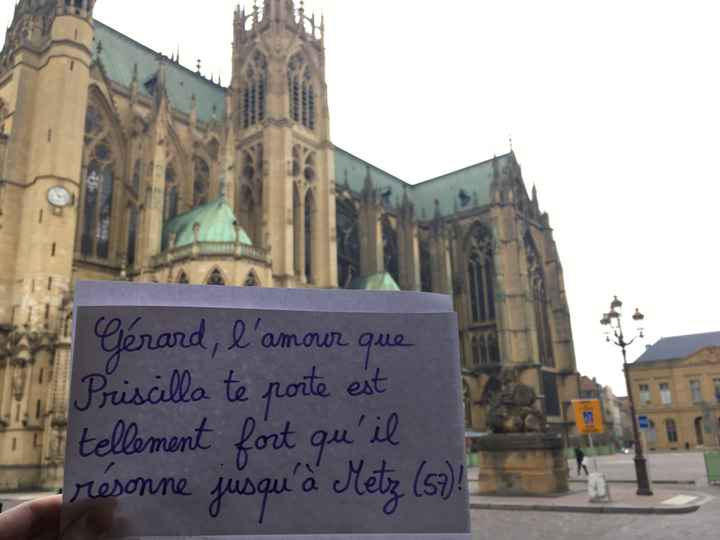 Gérard, l'amour que
Priscilla te porte est
tellement fort qu'il
résonne jusqu'à Metz (57)!